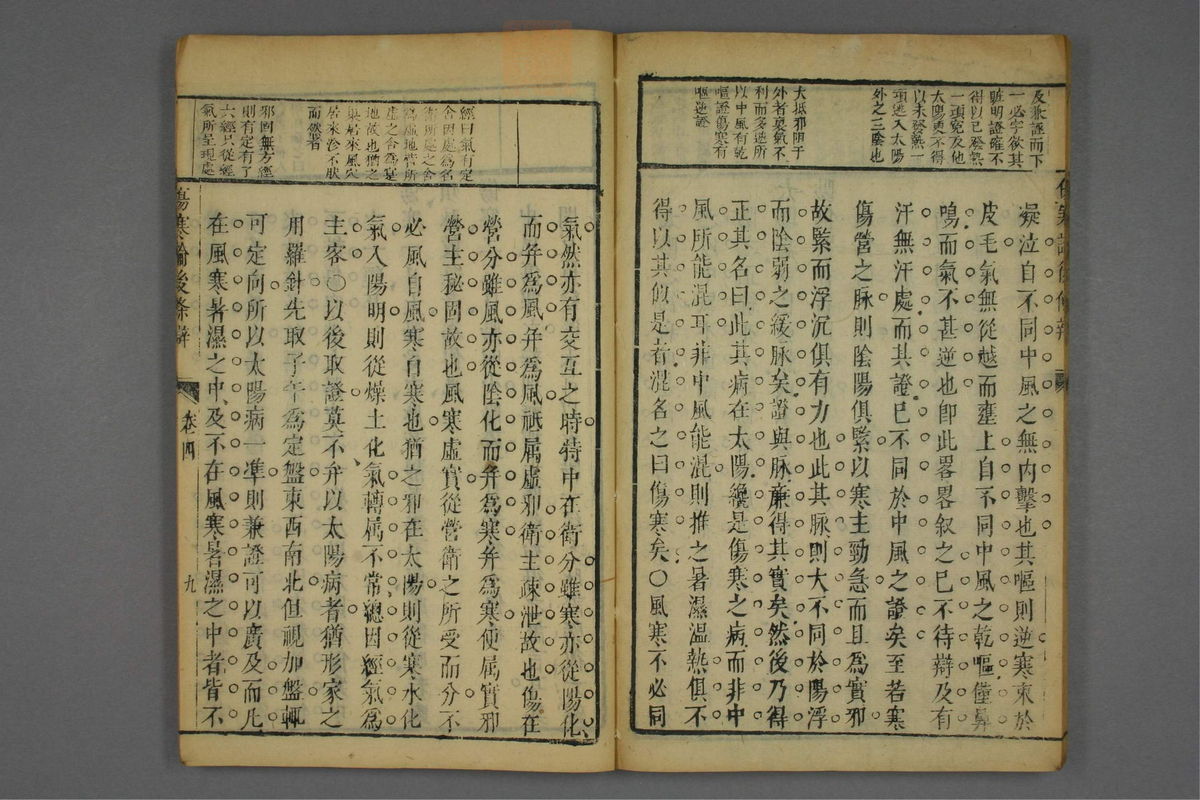 反兼誣而下
一必字欲其
賍明證確不
得以已發熱
一項寛及他
太陽更不得
以未發熱一
項逃入太陽
外之三陰也
大抵邪阻于
外者裏氣不
利而多逆所
以中風有乾
嘔證傷寒有
嘔逆證
凝泣自不同中風之無內擊也其嘔則逆寒束於
皮毛氣無從越而壅上自不同中風之乾嘔僅鼻
鳴而氣不甚逆也卽此畧畧叙之已不待辯及有
汗無汗處而其證已不同於中風之證矣至若寒
傷營之脉則陰陽俱緊以寒主勁急而且爲實邪
故緊而浮沉俱有力也此其脉則大不同於陽浮
而陰弱之緩脉矣證與脉兼得其實矣然後乃得
正其名曰此其病在太陽纔是傷寒之病而非中
風所能混耳非中風能混則推之暑濕溫熱俱不
得以其似是者混名之曰傷寒矣〇風寒不必同
經曰氣有定
舍因處爲名
衛所處之舍
爲虛地營所
處之舍爲實
地故也猶之
與居來風穴
居來冷不厭
而然者
邪固無方經
則有定有了
六經只從經
氣所呈現處
氣然亦有交互之時特中在衛分雖寒亦從陽化
而弁爲風弁爲風祇属虛邪衛主疎泄故也傷在
營分雖風亦從陰化而弁爲寒弁爲寒便属實邪
營主秘固故也風寒虛實從營衛之所受而分不
必風自風寒自寒也猶之邪在太陽則從寒水化
氣入陽明則從燥土化氣轉属不常總因經氣爲
主客〇以後取證莫不弁以太陽病者猶形家之
用羅針先取子午爲定盤東西南北但視加盤輒
可定向所以太陽病一準則兼證可以廣及而凡
在風寒暑濕之中及不在風寒暑濕之中者皆不
傷寒論後條辯
卷四
九